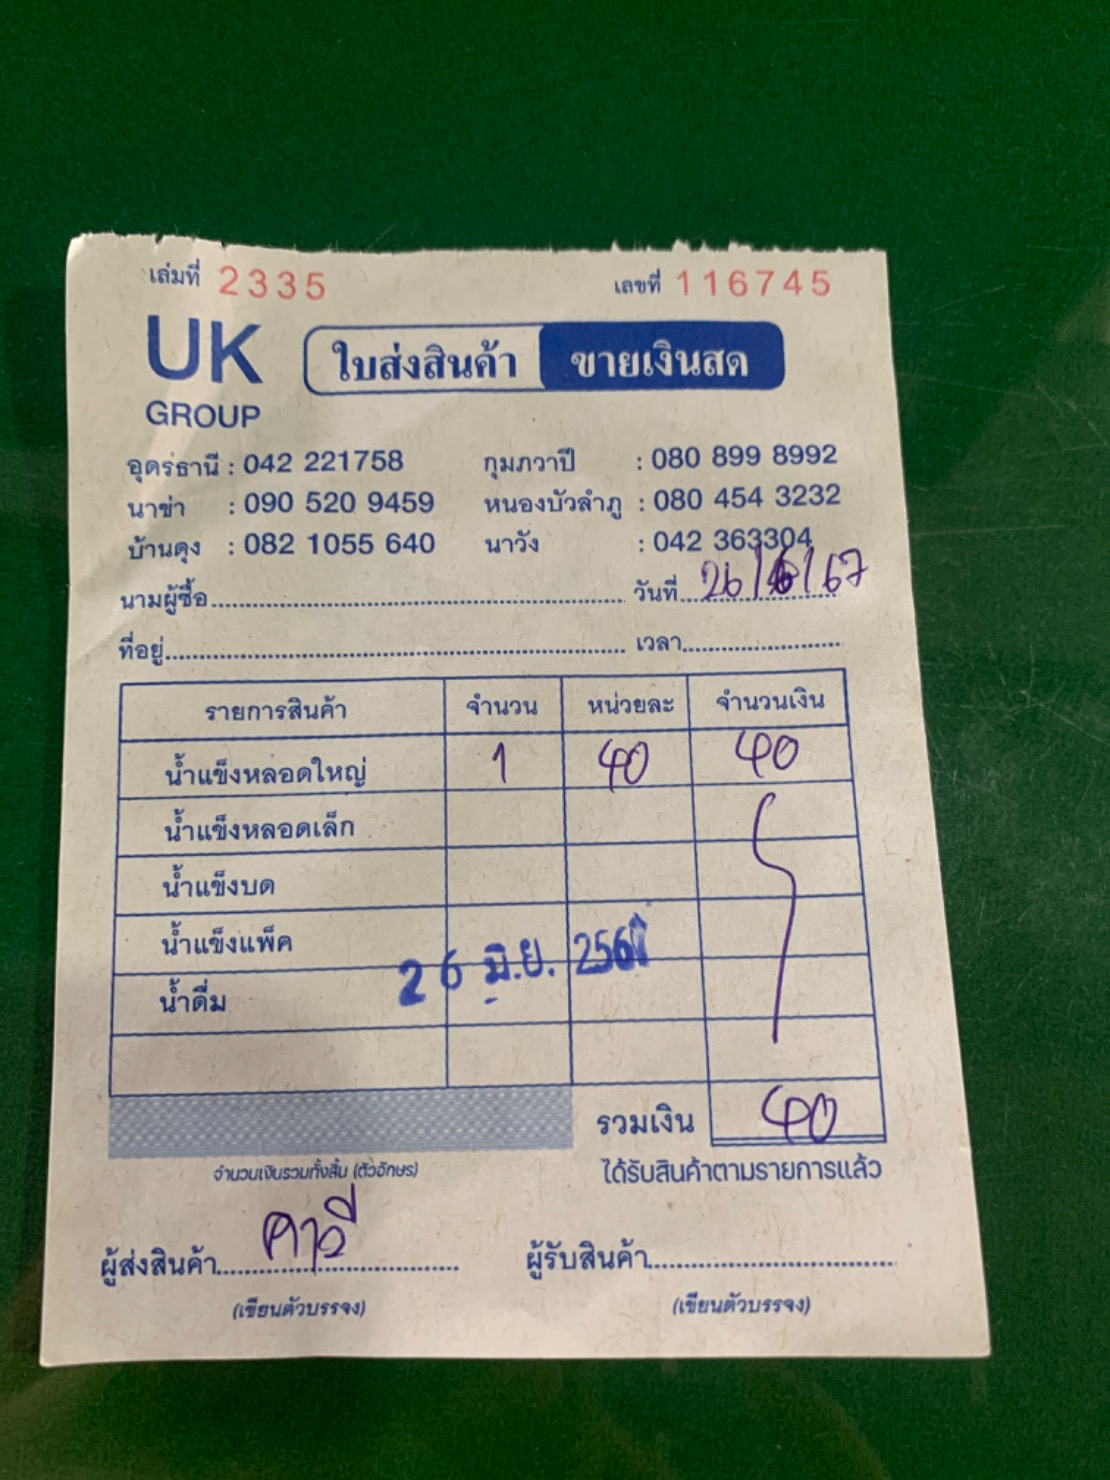 เล่มที่ 2335 เลขที่ 116745
UK GROUP
ใบส่งสินค้า ขายเงินสด
อุดรธานี : 042 221758 กุมภวาปี : 080 899 8992
นาข่า : 090 520 9459 หนองบัวลำภู : 080 454 3232
บ้านดุง : 082 1055 640 นาวัง : 042 363304
นามผู้ซื้อ วันที่ 26/6/67
ที่อยู่ เวลา
รายการสินค้า จำนวน หน่วยละ จำนวนเงิน
น้ำแข็งหลอดใหญ่ 1 40 40
น้ำแข็งหลอดเล็ก
น้ำแข็งบด
น้ำแข็งแพ็ค
26 มิ.ย.
น้ำดื่ม
รวมเงิน 40
จำนวนเงินรวมทั้งสิ้น (ตัวอักษร) ได้รับสินค้าตามรายการแล้ว
ผู้ส่งสินค้า ผู้รับสินค้า
(เขียนตัวบรรจง) (เขียนตัวบรรจง)